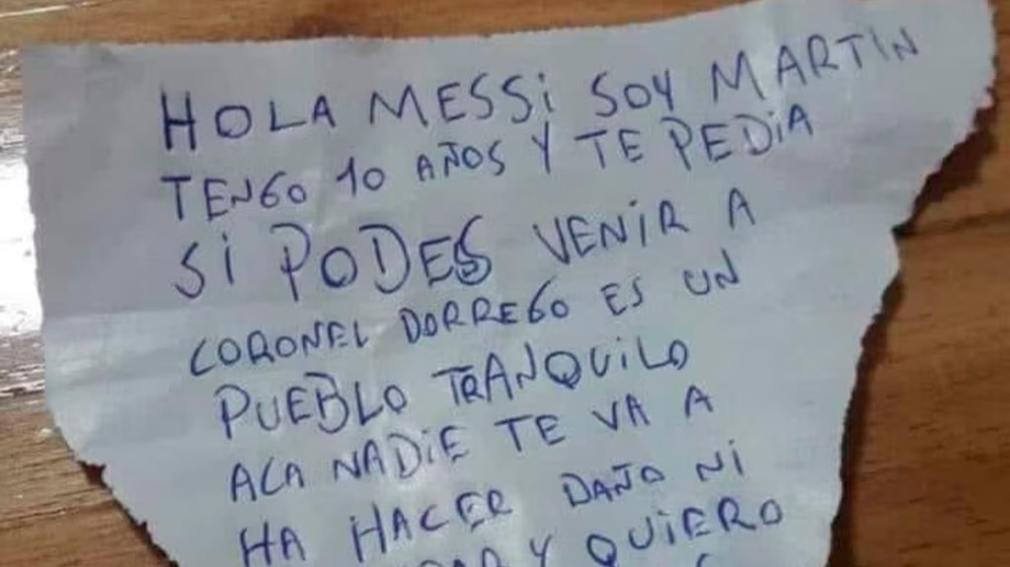 HOLA MESSi SOY MARTiN
TENGO 10 AÑOS Y TE PEDiA
Si PODES VENiR A
CORONEL DORREGO ES UN
PUEBLO TRANQUiLO
ACA NADiE TE VA A
HA HACER DAÑO Ni
Y QUiERO